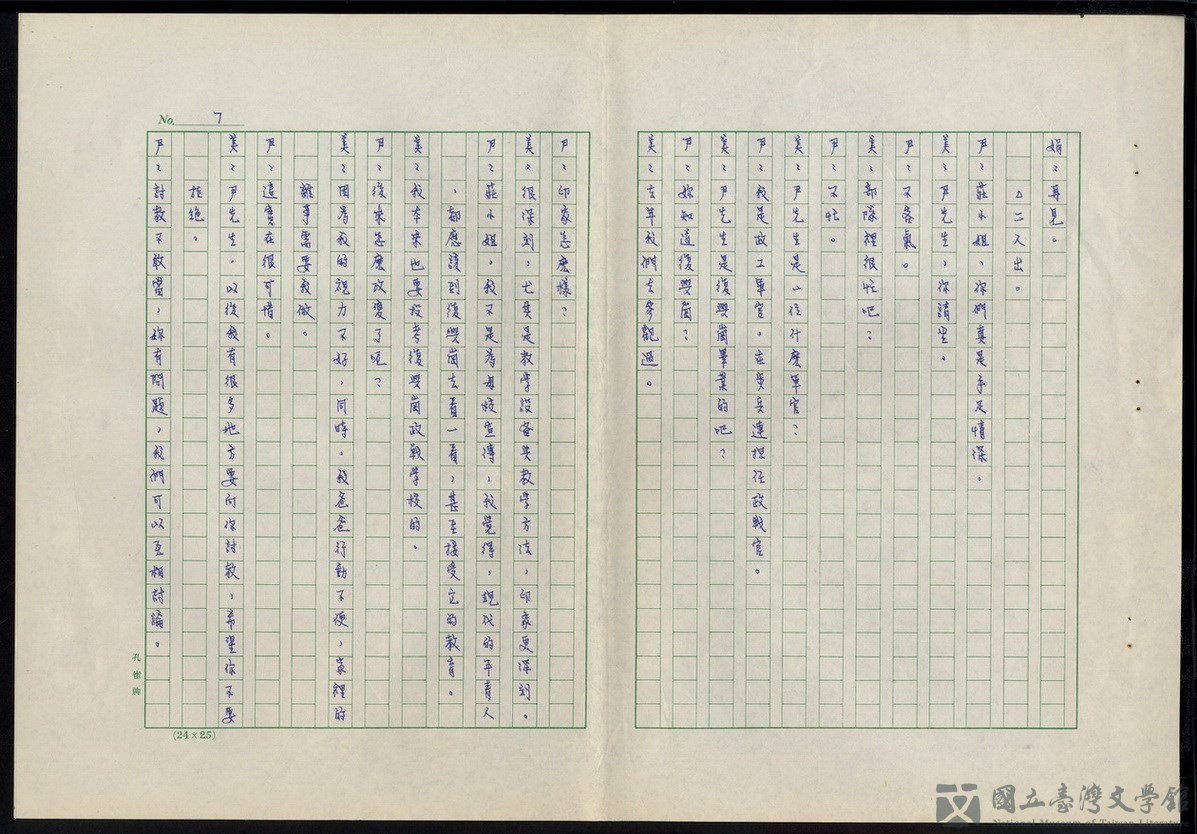 娟：再見。
△二人出。
尹：莊小姐，你們真是手足情深。
美：尹先生，你請坐。
尹：不客氣。
美：部隊裡很忙吧？
尹：不忙。
美：尹先生是一位什麼軍官？
尹：我是政工軍官，在步兵連担任政戰官。
美：尹先生是復興崗畢業的吧？
尹：妳知道復興崗？
美：去年我們去參觀過。
尹：印象怎麼樣？
美：很深刻，尤其是教學設备與教學方法，印象更深刻。
尹：莊小姐，我不是為母校宣傳，我覺得，現代的年青人
，都應該到復興崗去看一看，甚至接受它的教育。
美：我本來也要投考復興崗政戰學校的。
尹：後來怎麼改變了呢？
美：因為我的視力不好，同時，我爸爸行動不便，家裡的
雜事需要我做。
尹：這實在很可惜。
美：尹先生，以後我有很多地方要向你討教，希望你不要
拒絶。
尹：討教不敢當，妳有問題，我們可以互相討論。
No. 7
孔雀牌
(24×25)
國立臺灣文學館
National Museum of Taiwan Literature